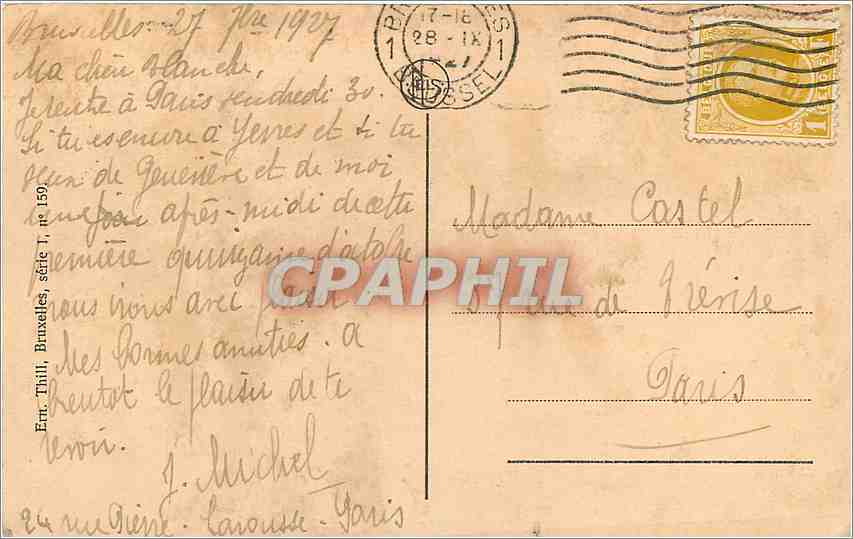 Bruxelles 27 7bre 1927
Ma chère Blanche,
Je rentre à Paris vendredi 30.
Si tu es encore à Yerres et si tu
veux de Geneviève et de moi
une après-midi de cette
première quinzaine d'octobre
nous irons avec plaisir
Mes bonnes amitiés. A
bientôt le plaisir de te
revoir.
J. Michel
24 rue Pierre-Larousse-Paris
Ern. Thill, Bruxelles, série 1, n° 159.
17-18
28-IX
27
1 1
BRUSSEL
1
Madame Castel
rue de Trévise
Paris
CPAPHIL